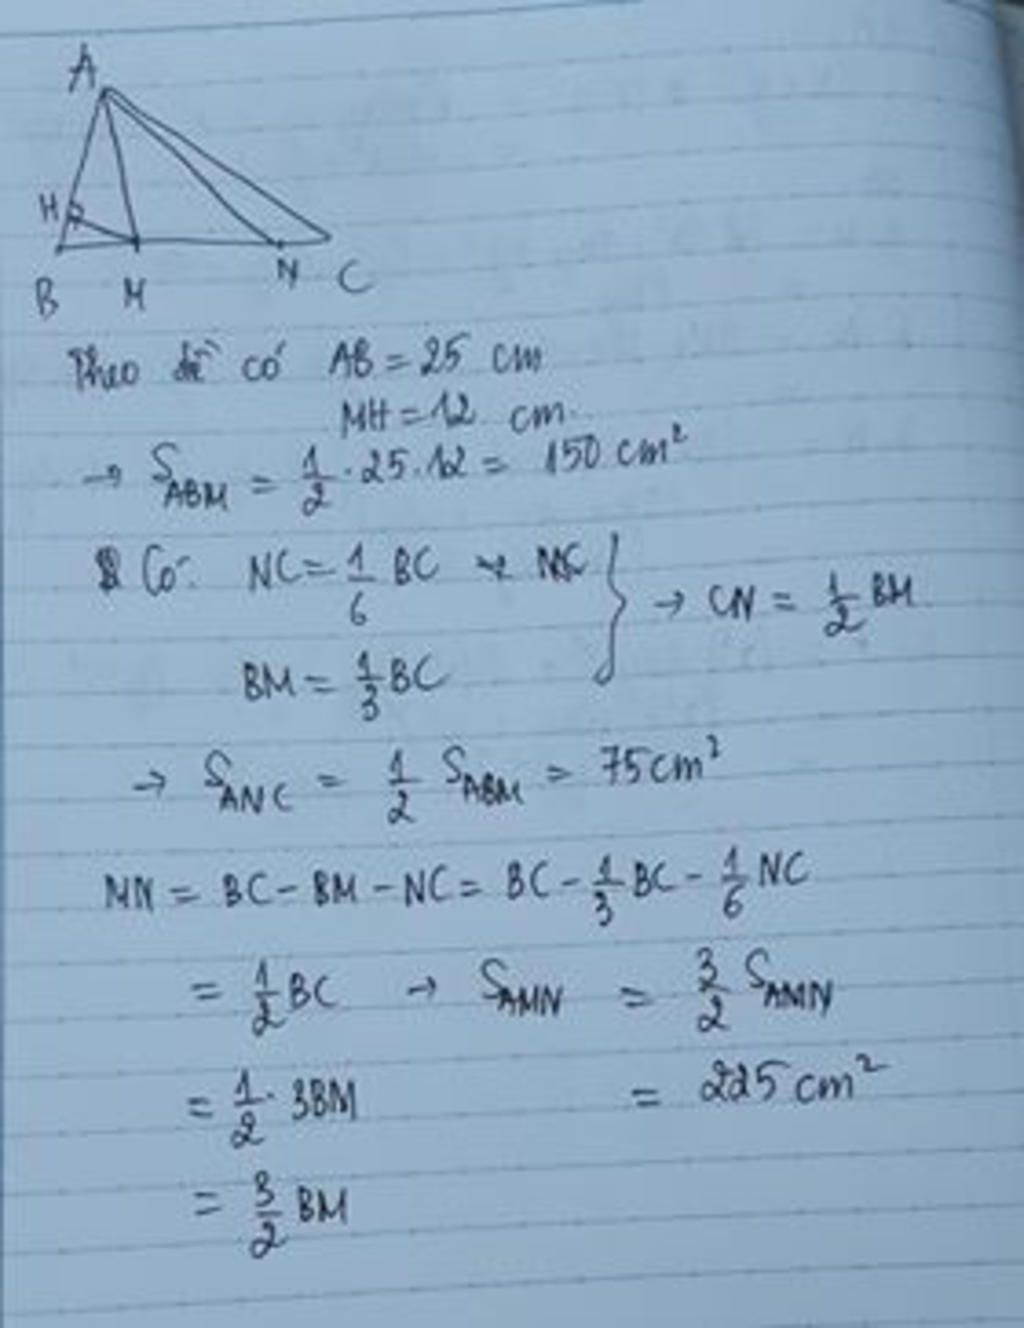 A
H
B M N C
Theo đề có AB = 25 cm
MH = 12 cm.
→ S_ABM = 1/2 . 25 . 12 = 150 cm²
Có: NC = 1/6 BC
BM = 1/3 BC } → CN = 1/2 BM
→ S_ANC = 1/2 S_ABM = 75 cm²
MN = BC - BM - NC = BC - 1/3 BC - 1/6 NC
= 1/2 BC → S_AMN = 3/2 S_AMN
= 1/2 . 3BM = 225 cm²
= 3/2 BM